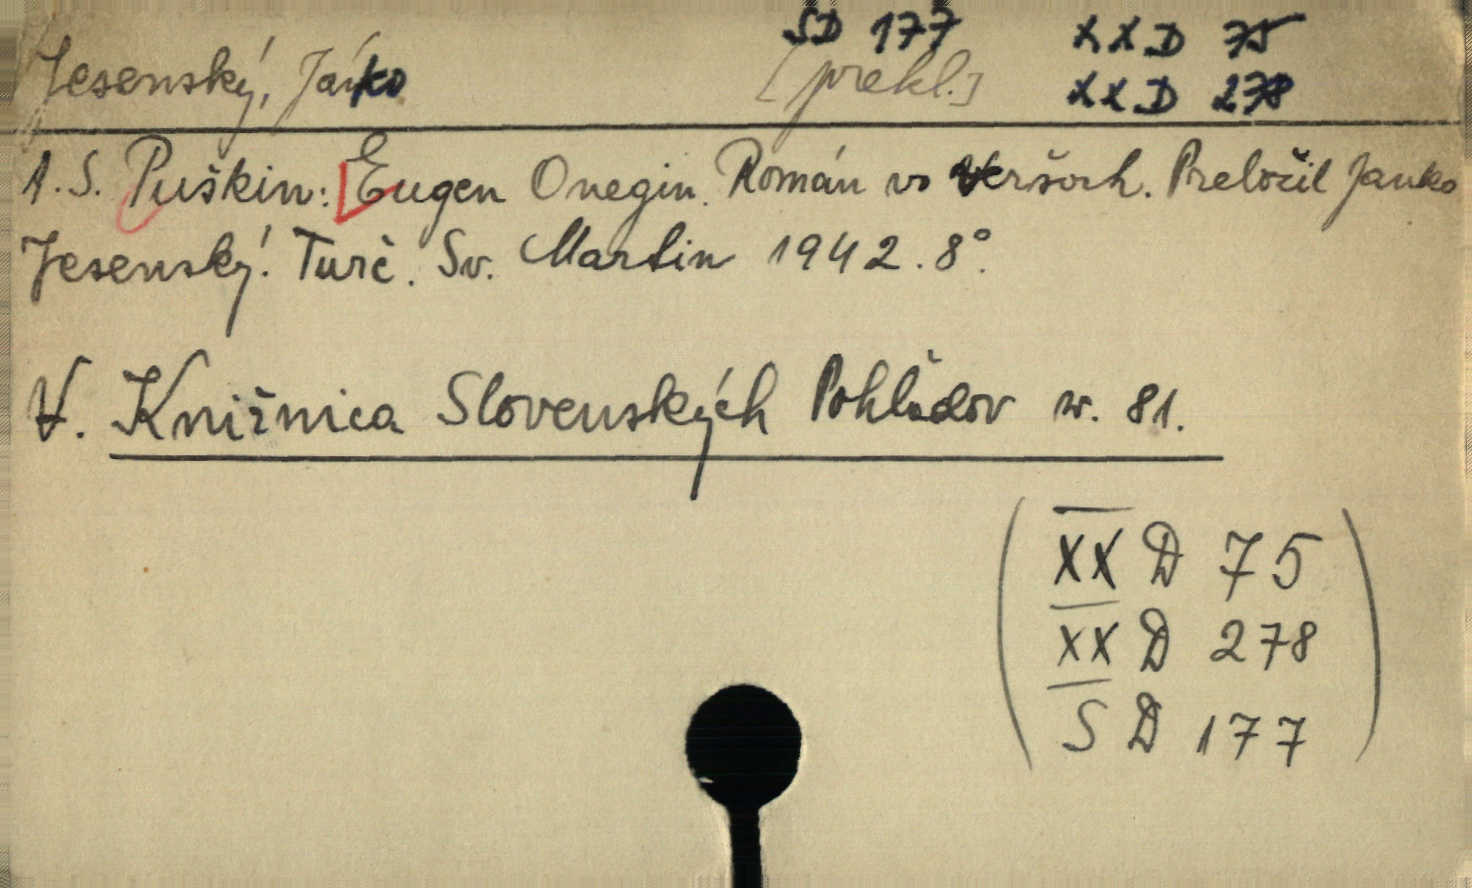 SD 177 XXD 75
Jesenský, Janko [prekl.] XXD 278
A. S. Puškin: Eugen Onegin. Román vo veršoch. Preložil Janko
Jesenský. Turč. Sv. Martin 1942. 8°.
V. Knižnica Slovenských Pohľadov zv. 81.
(XX D 75
XX D 278
S D 177)